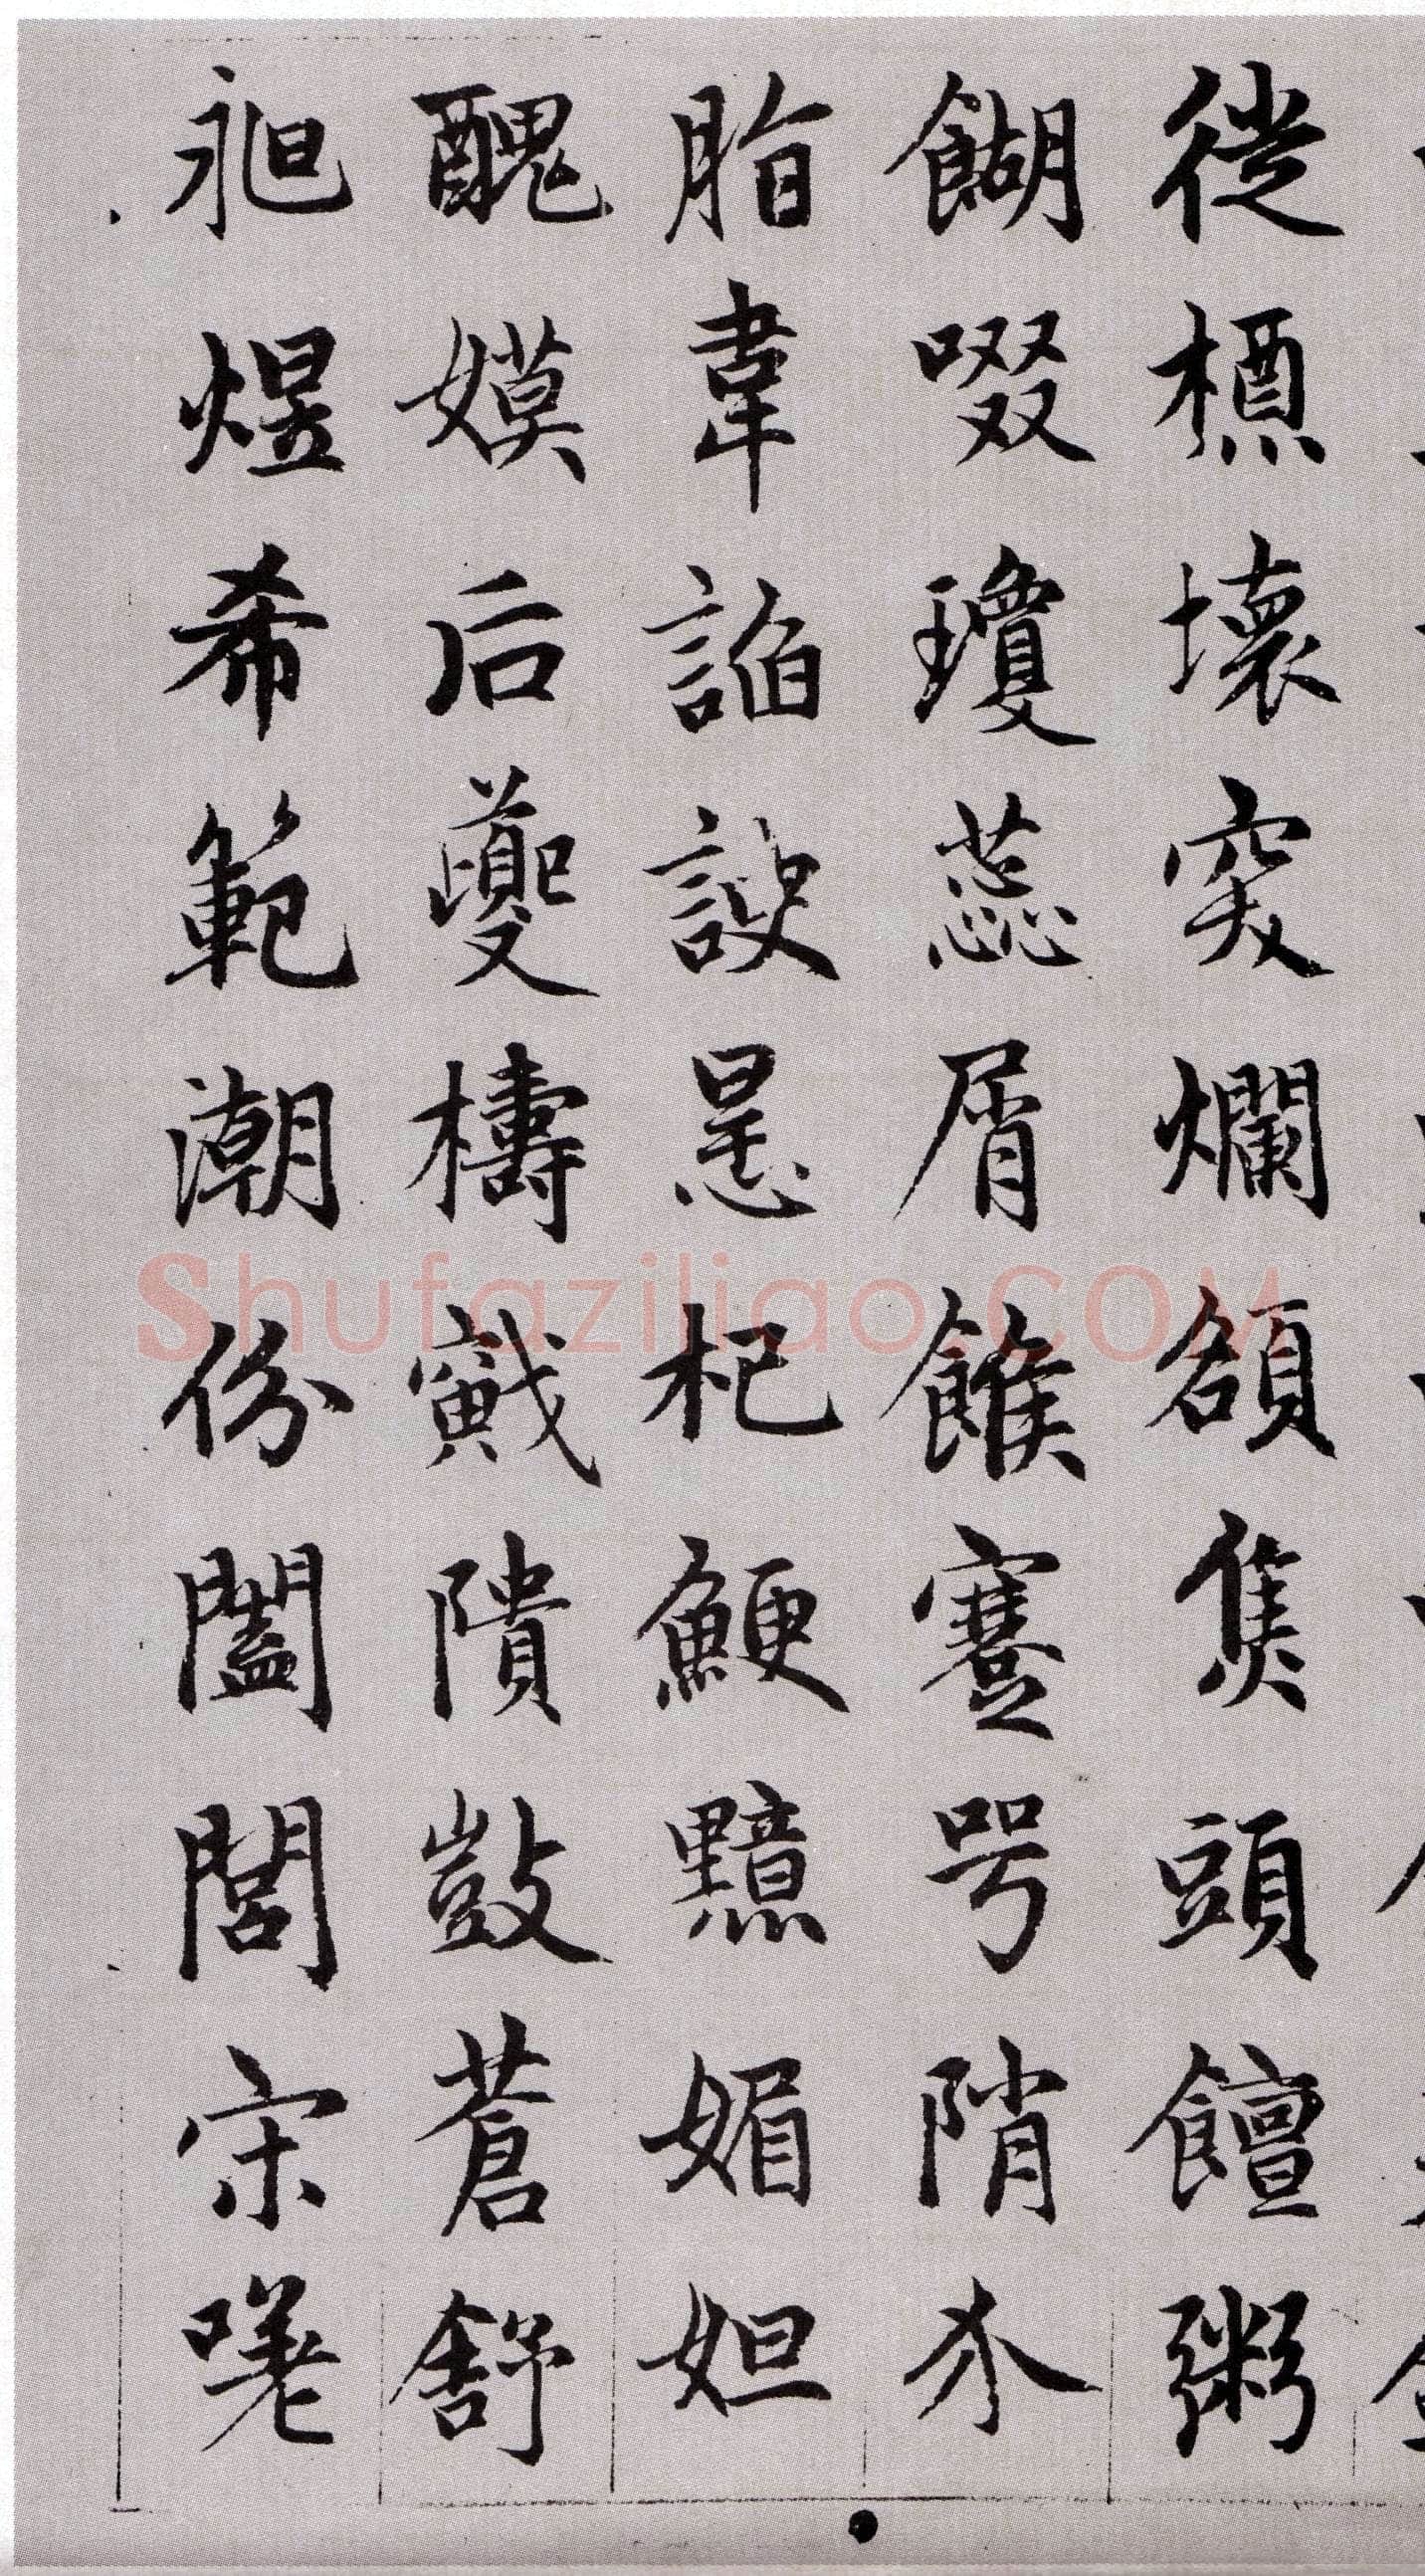 徙槱壞突爛額焦頭饘粥
餬啜瓊蕊屑餱蹇咢陗介
脂韋諂諛杞鯁黯媚妲
醜嫫后夔檮戭隤敳蒼舒
昶煜希範潮份闔閭宋
Shufaziliao.COM